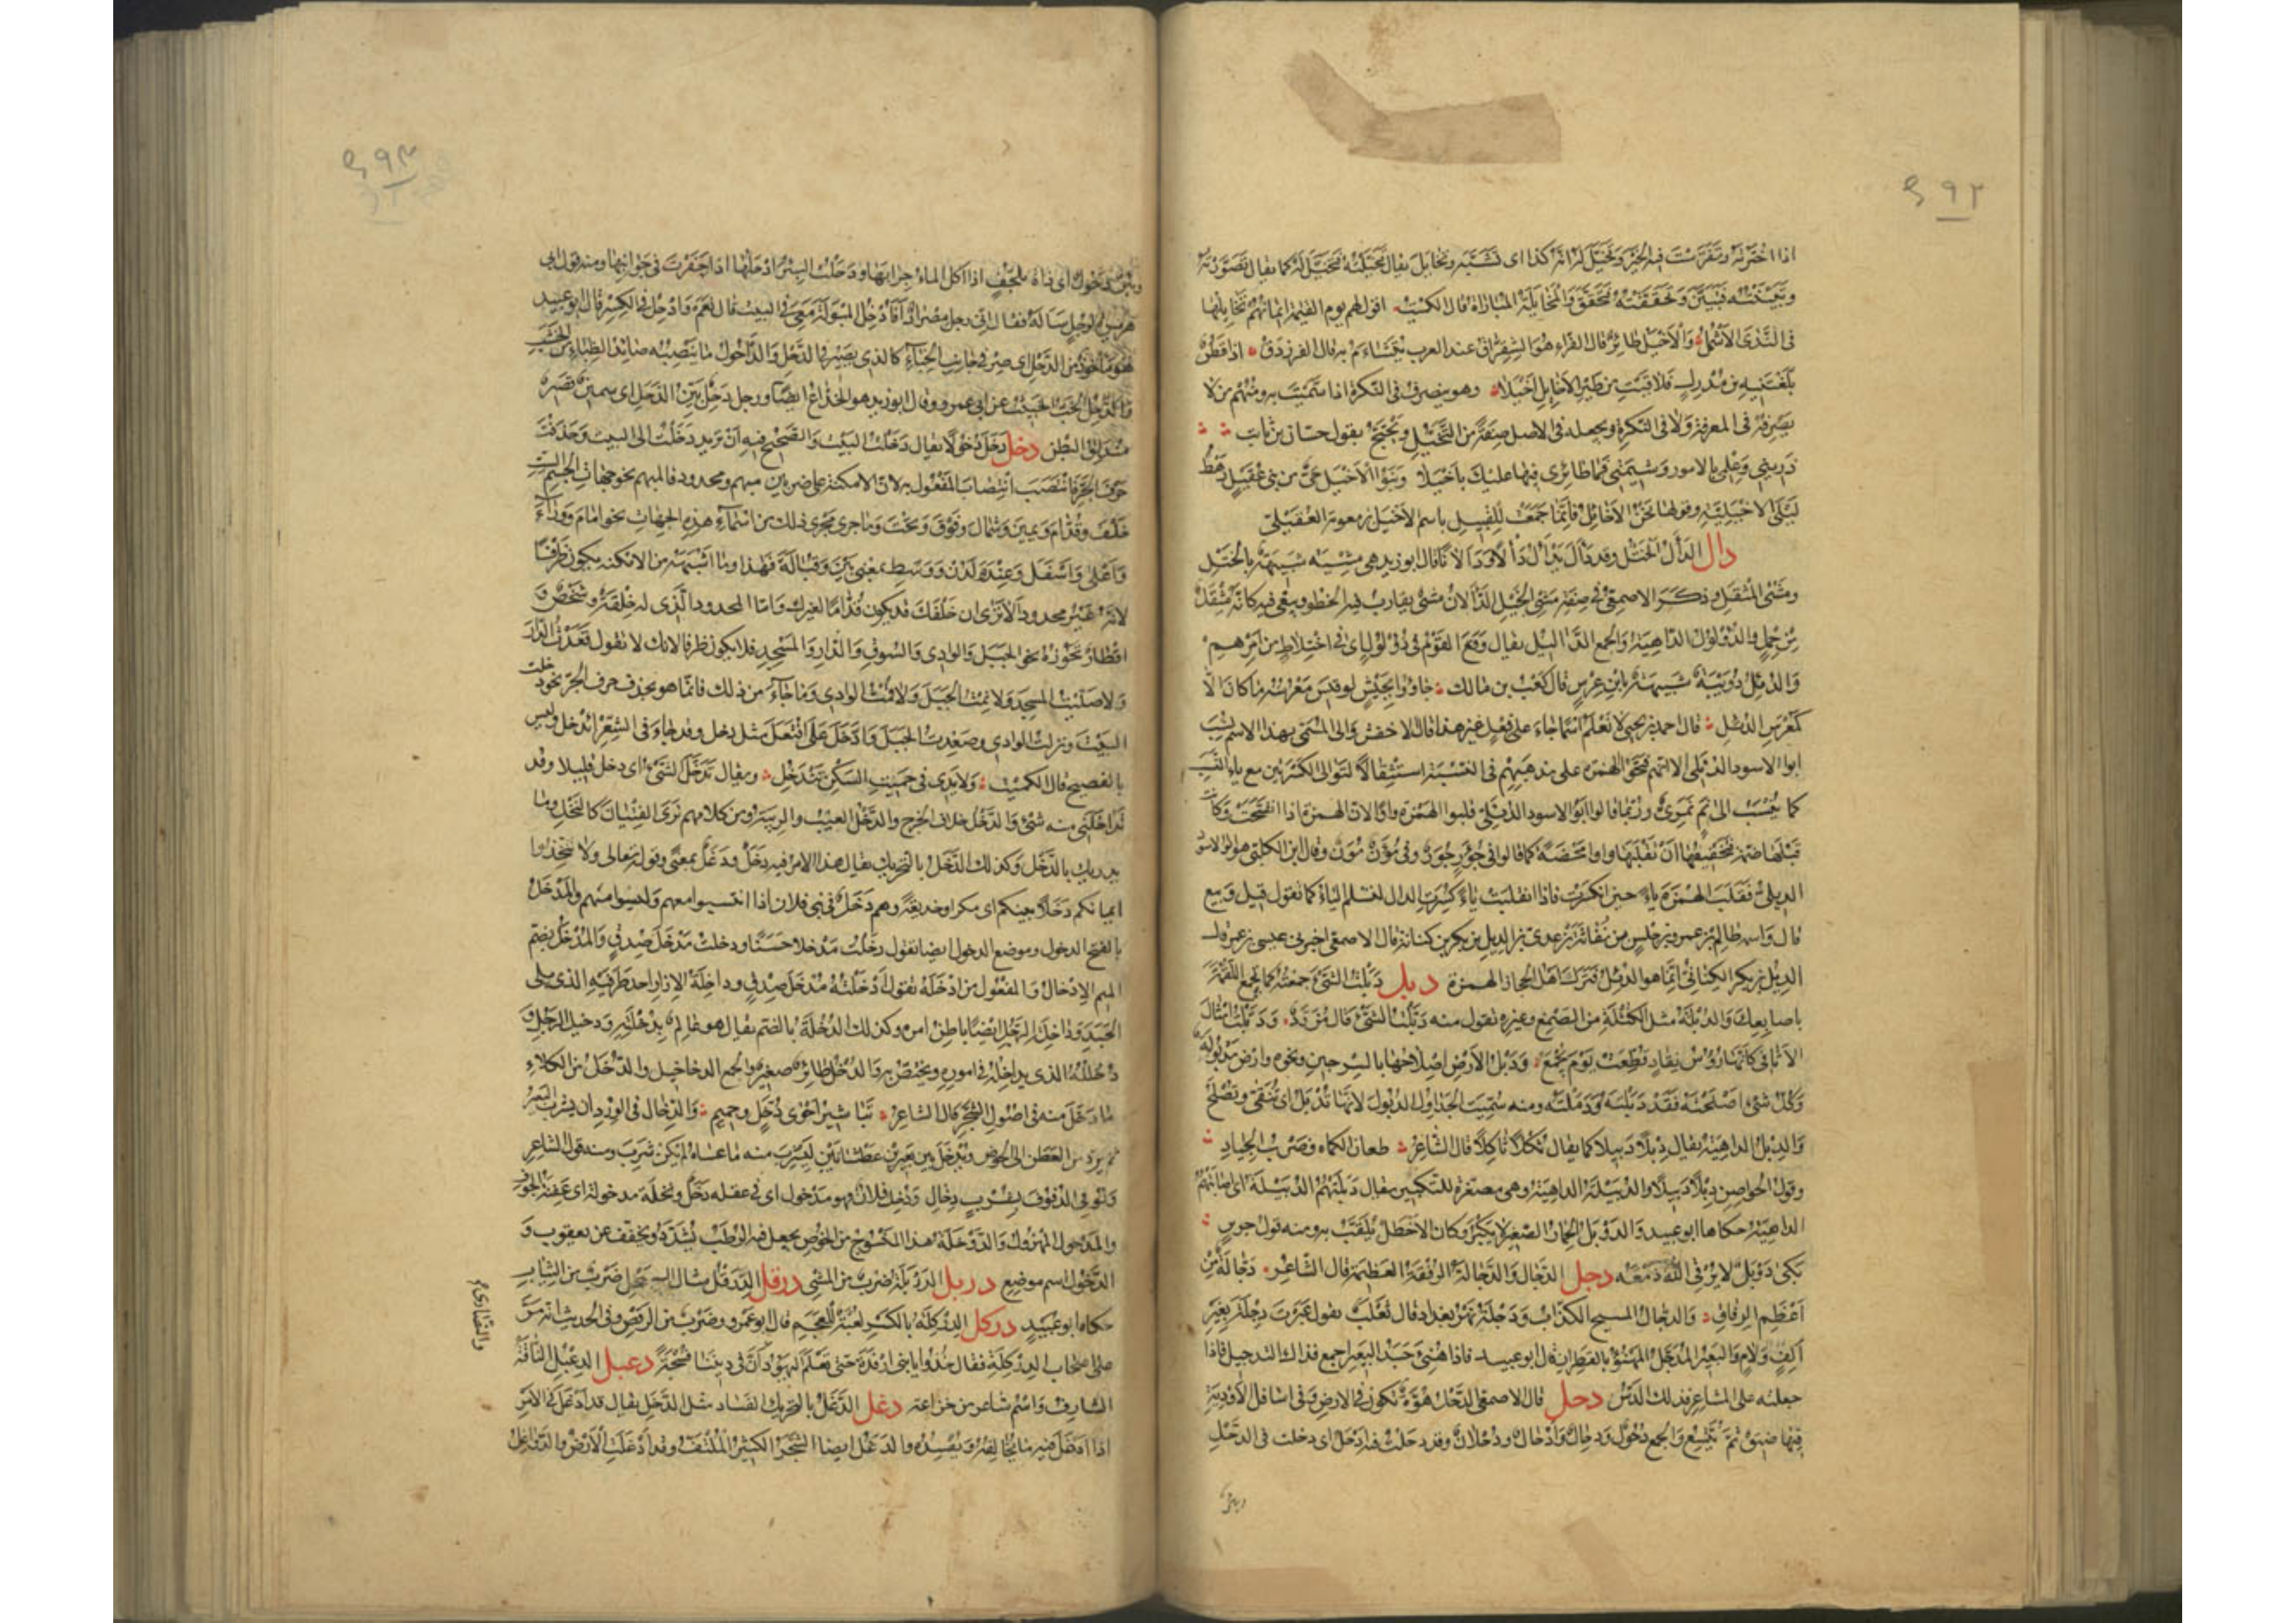 ٤٩٢
اذا اخترته وتفرست فيه الخير وتخيل له انه كذا اى تشبه وتخايل يقال تخيلته فتخيل لى كما يقال تصورته
وتبينته فتبين وتحققته فتحقق والمخايلة المباراة قال الكميت اقول لهم يوم ايمانهم تخايلها
فى الندى الأشمل والأخيل طائر قال الفراء هو الشقراق عند العرب يتشاءم به قال الفرزدق اذا قطن
بلغتنيه بن مدرك فلاقيت من طير الأخايل أخيلا وهو ينصرف فى النكرة اذا سميت به ومنهم من لا
يصرفه فى المعرفة ولا فى النكرة ويجعله فى الاصل صفة من التخيل ويحتج بقول حسان بن ثابت
ذرينى وعلمى بالامور وشيمتى فما طائرى فيها عليك بأخيلا وبنو الأخيل حى من بنى عقيل رهط
ليلى الأخيلية وقولها نحن الأخائل فإنما جمعت القبيل باسم الاخيل بن معوية العقيلى
دال الدأل الختل وقد دأل يدأل دألا ودألانا قال ابو زيد هى مشية شبيهة بالختل
ومشى المثقل وذكر الاصمعى فى صفة مشى الخيل الدألان مشى يقارب فيه الخطو ويبغى فيه كانه مثقل
من حمل والدؤلول الداهية والجمع الدآليل يقال وقع القوم فى دؤلول اى فى اختلاط من امرهم
والدئل دويبة شبيهة بابن عرس قال كعب بن مالك جاؤوا بجيش لو قيس معرسه ما كان الا
كمعرس الدئل قال احمد بن يحيى لا نعلم اسما جاء على فعل غير هذا قال الاخفش والى المسمى بهذا الاسم نسب
ابو الاسود الدئلى الا انهم فتحوا الهمزة على مذهبهم فى النسبة استثقالا لتوالى الكسرتين مع ياء النسب
كما ينسب الى نمر نمرى وربما قالوا ابو الاسود الدولى قلبوا الهمزة واوا لان الهمزة اذا انفتحت وكانت
قبلها ضمة فتخفيفها ان تقلبها واوا محضة كما قالوا فى جؤن جون وفى مؤن مون وقال ابن الكلبى هو ابو الاسود
الديلى فقلب الهمزة ياء حين انكسرت فاذا انقلبت ياء كسرت الدال لتسلم الياء كما تقول قيل وبيع
قال واسمه ظالم بن عمرو بن حلس بن نفاثة بن عدى بن الديل بن بكر بن كنانة قال الاصمعى اخبرنى عيسى بن عمر قال
الديل بن بكر الكنانى انما هو الدئل فترك اهل الحجاز الهمزة دبل دبلت الشئ جمعته كما تجمع اللقمة
باصابعك والدبلة مثل الكتلة من الصمغ وغيره تقول منه دبلت الشئ قال مزرد ودبلت امثال
الاثافى كانها رؤوس نقاد قطعت يوم تجمع ودبل الأرض اصلاحها بالسرجين ونحوه وارض مدبولة
وكل شئ اصلحته فقد دبلته ودملته ومنه سميت الجداول الدبول لانها تدبل اى تنقى وتصلح
والدبل الداهية يقال دبلا دبيلا كما يقال ثكلا ثاكلا قال الشاعر طعان الكماة وضرب الجياد
وقول الحواصن دبلا دبيلا والدبيلة الداهية وهى مصغرة للتكبير يقال دبلتهم الدبيلة اى اصابتهم
الداهية حكاها ابو عبيد والدوبل الحمار الصغير لا يكبر وكان الاخطل يلقب به ومنه قول جرير
بكى دوبل لا يرقئ الله دمعه دجل الدجال والدجالة الرفقة العظيمة قال الشاعر دجالة من
أعظم الرفاق والدجال المسيح الكذاب ودجلة نهر بغداد قال ثعلب تقول عبرت دجلة بغير
ألف ولام والبعير المدجل المهنوء بالقطران قال ابو عبيد فاذا هنئ جسد البعير اجمع فذاك التدجيل فاذا
جعلته على المشاعر فذلك الدس دحل قال الاصمعى الدحل هوة تكون فى الارض وفى اسافل الأودية
فيها ضيق ثم تتسع والجمع دحول ودحال وأدحال ودحلان وقد دحلت فيه ادحل اى دخلت فى الدحل
وبئر
٤٩٣
وبئر دحول اى ذات تلجف اذا اكل الماء جرابها ودحلت البئر ادحلها اذا حفرت فى جوانبها ومنه قول ابى
هريرة لرجل سأله فقال انى رجل مصراد أفأدخل المبولة معى فى البيت قال نعم وادحل فى الكسر قال ابو عبيد
هو مأخوذ من الدحل اى صر فى جانب الخباء كالذى يصير فى الدحل والداحول ما ينصبه صائد الظباء من الخشب
والدحل الخب الخبيث عن ابى عمرو وقال ابو زيد هو الخداع ايضا ورجل دحل بين الدحل اى سمين قصير
مندلق البطن دخل دخل دخولا يقال دخلت البيت والصحيح فيه ان تريد دخلت الى البيت وحذفت
حرف الجر فانتصب انتصاب المفعول به لان الامكنة على ضربين مبهم ومحدود فالمبهم نحو جهات الجسم الست
خلف وقدام ويمين وشمال وفوق وتحت وما جرى مجرى ذلك من اسماء هذه الجهات نحو امام ووراء
وأعلى وأسفل وعند ولدن ووسط بمعنى بين وقبالة فهذا وما اشبهه من الامكنة يكون ظرفا
لانه غير محدود ألا ترى ان خلفك قد يكون قداما لغيرك واما المحدود الذى له خلقة وشخص و
اقطار تحوزه نحو الجبل والوادى والسوق والدار والمسجد فلا يكون ظرفا لانك لا تقول قعدت الدار
ولا صليت المسجد ولا نمت الجبل ولا قمت الوادى وما جاء من ذلك فانما هو بحذف حرف الجر نحو دخلت
البيت ونزلت الوادى وصعدت الجبل وادخل على افتعل مثل دخل وقد جاء فى الشعر اندخل وليس
بالفصيح قال الكميت ولا يدى فى حميت السكن تندخل ويقال تدخل الشئ اى دخل قليلا وقد
تداخلنى منه شئ والدخل خلاف الخرج والدخل العيب والريبة ومن كلامهم ترى الفتيان كالنخل وما
يدريك بالدخل وكذلك الدخل بالتحريك يقال هذا الامر فيه دخل ودغل بمعنى وقوله تعالى ولا تتخذوا
ايمانكم دخلا بينكم اى مكرا وخديعة وهم دخل فى بنى فلان اذا انتسبوا معهم وليسوا منهم والمدخل
بالفتح الدخول وموضع الدخول ايضا تقول دخلت مدخلا حسنا ودخلت مدخل صدق والمدخل بضم
الميم الإدخال والمفعول من ادخله تقول أدخلته مدخل صدق وداخلة الإزار احد طرفيه الذى يلى
الجسد وداخلة الرجل ايضا باطن امره وكذلك الدخلة بالضم يقال هو عالم بدخلته ودخيل الرجل و
دخلله الذى يداخله فى اموره ويختص به والدخل طائر صغير والجمع الدخاخيل والدخل من الكلاء
ما دخل منه فى اصول الشجر قال الشاعر تباشير احوى دخل وجميم والدخال فى الورد ان يشرب البعير
ثم يرد من العطن الى الحوض ويدخل بين بعيرين عطشانين ليشرب منه ما عساه لم يكن شرب ومنه قول الشاعر
بشرب دخال ودخل فلان فهو مدخول اى فى عقله دخل ونخلة مدخولة اى عفنة الجوف
والمدخول المهزول والدوخلة هذا المنسوج من الخوص يجعل فيه الرطب يشدد ويخفف عن يعقوب و
الدخول اسم موضع دربل الدربلة ضرب من المشى درقل الدرقل مثال السبحل ضرب من الثياب
حكاه ابو عبيد دركل الدركلة بالكسر لعبة للعجم قال ابو عمرو وضرب من الرقص وفى الحديث انه مر
على اصحاب الدركلة فقال خذوا يا بنى ارفدة حتى تعلم اليهود ان فى ديننا فسحة دعبل الدعبل الناقة
والنصارى
الشارف واسم شاعر من خزاعة دغل الدغل بالتحريك الفساد مثل الدخل يقال قد أدغل فى الأمر
اذا ادخل فيه ما يخالفه ويفسده والدغل ايضا الشجر الكثير الملتف وقد أدغلت الأرض والدواغل